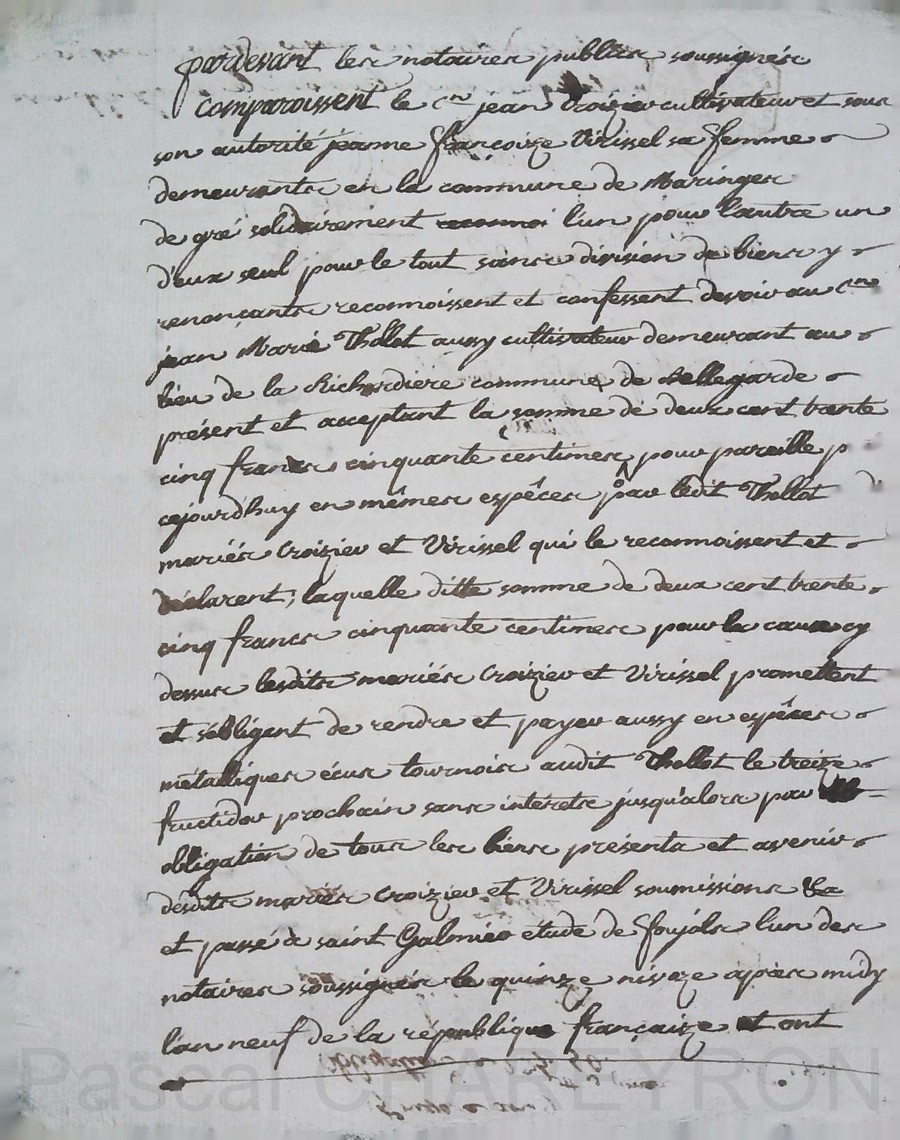 pardevant les notaires publics soussignés
comparoissent le c.en jean Croizier cultivateur et sous
son autorité jeanne françoize Virissel sa femme
demeurants en la commune de Maringes
de gré solidairement l'un pour l'autre un
d'eux seul pour le tout sans division de biens y
renonçants reconnoissent et confessent devoir au c.en
jean Marie Thollot aussy cultivateur demeurant au
lieu de la Richardiere commune de Bellegarde
présent et acceptant la somme de deux cent trente
cinq francs cinquante centimes pour pareille p
cejourdhuy en mêmes espêces par ledit Thollot
mariés Croizier et Virissel qui le reconnoissent et
déclarent; laquelle ditte somme de deux cent trente
cinq francs cinquante centimes pour la cause cy
dessus lesdits mariés Croizier et Virissel promettent
et s'obligent de rendre et payer aussy en espêces
métalliques écus tournois audit Thollot le treize
fructidor prochain sans intérêts jusqu'alors par
obligation de tous les biens présents et avenir
desdits mariés Croizier et Virissel soumissions &a
et passé à saint Galmier etude de foujols l'un des
notaires soussignés le quinze nivoze après midy
l'an neuf de la république françaize et ont
Pascal CHAREYRON